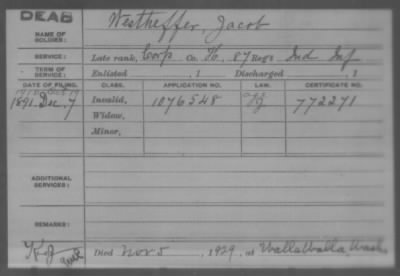 DEAD
NAME OF SOLDIER: Westheffer, Jacob
SERVICE: Late rank, Corp Co. H, 87 Reg't Ind Inf
TERM OF SERVICE: Enlisted , 1 Discharged , 1
DATE OF FILING. CLASS. APPLICATION NO. LAW. CERTIFICATE NO.
1891 Dec, 7 Invalid, 1076548 772271
Widow,
Minor,
ADDITIONAL SERVICES:
REMARKS:
Died Nov 5, 1929, at Walla Walla, Wash